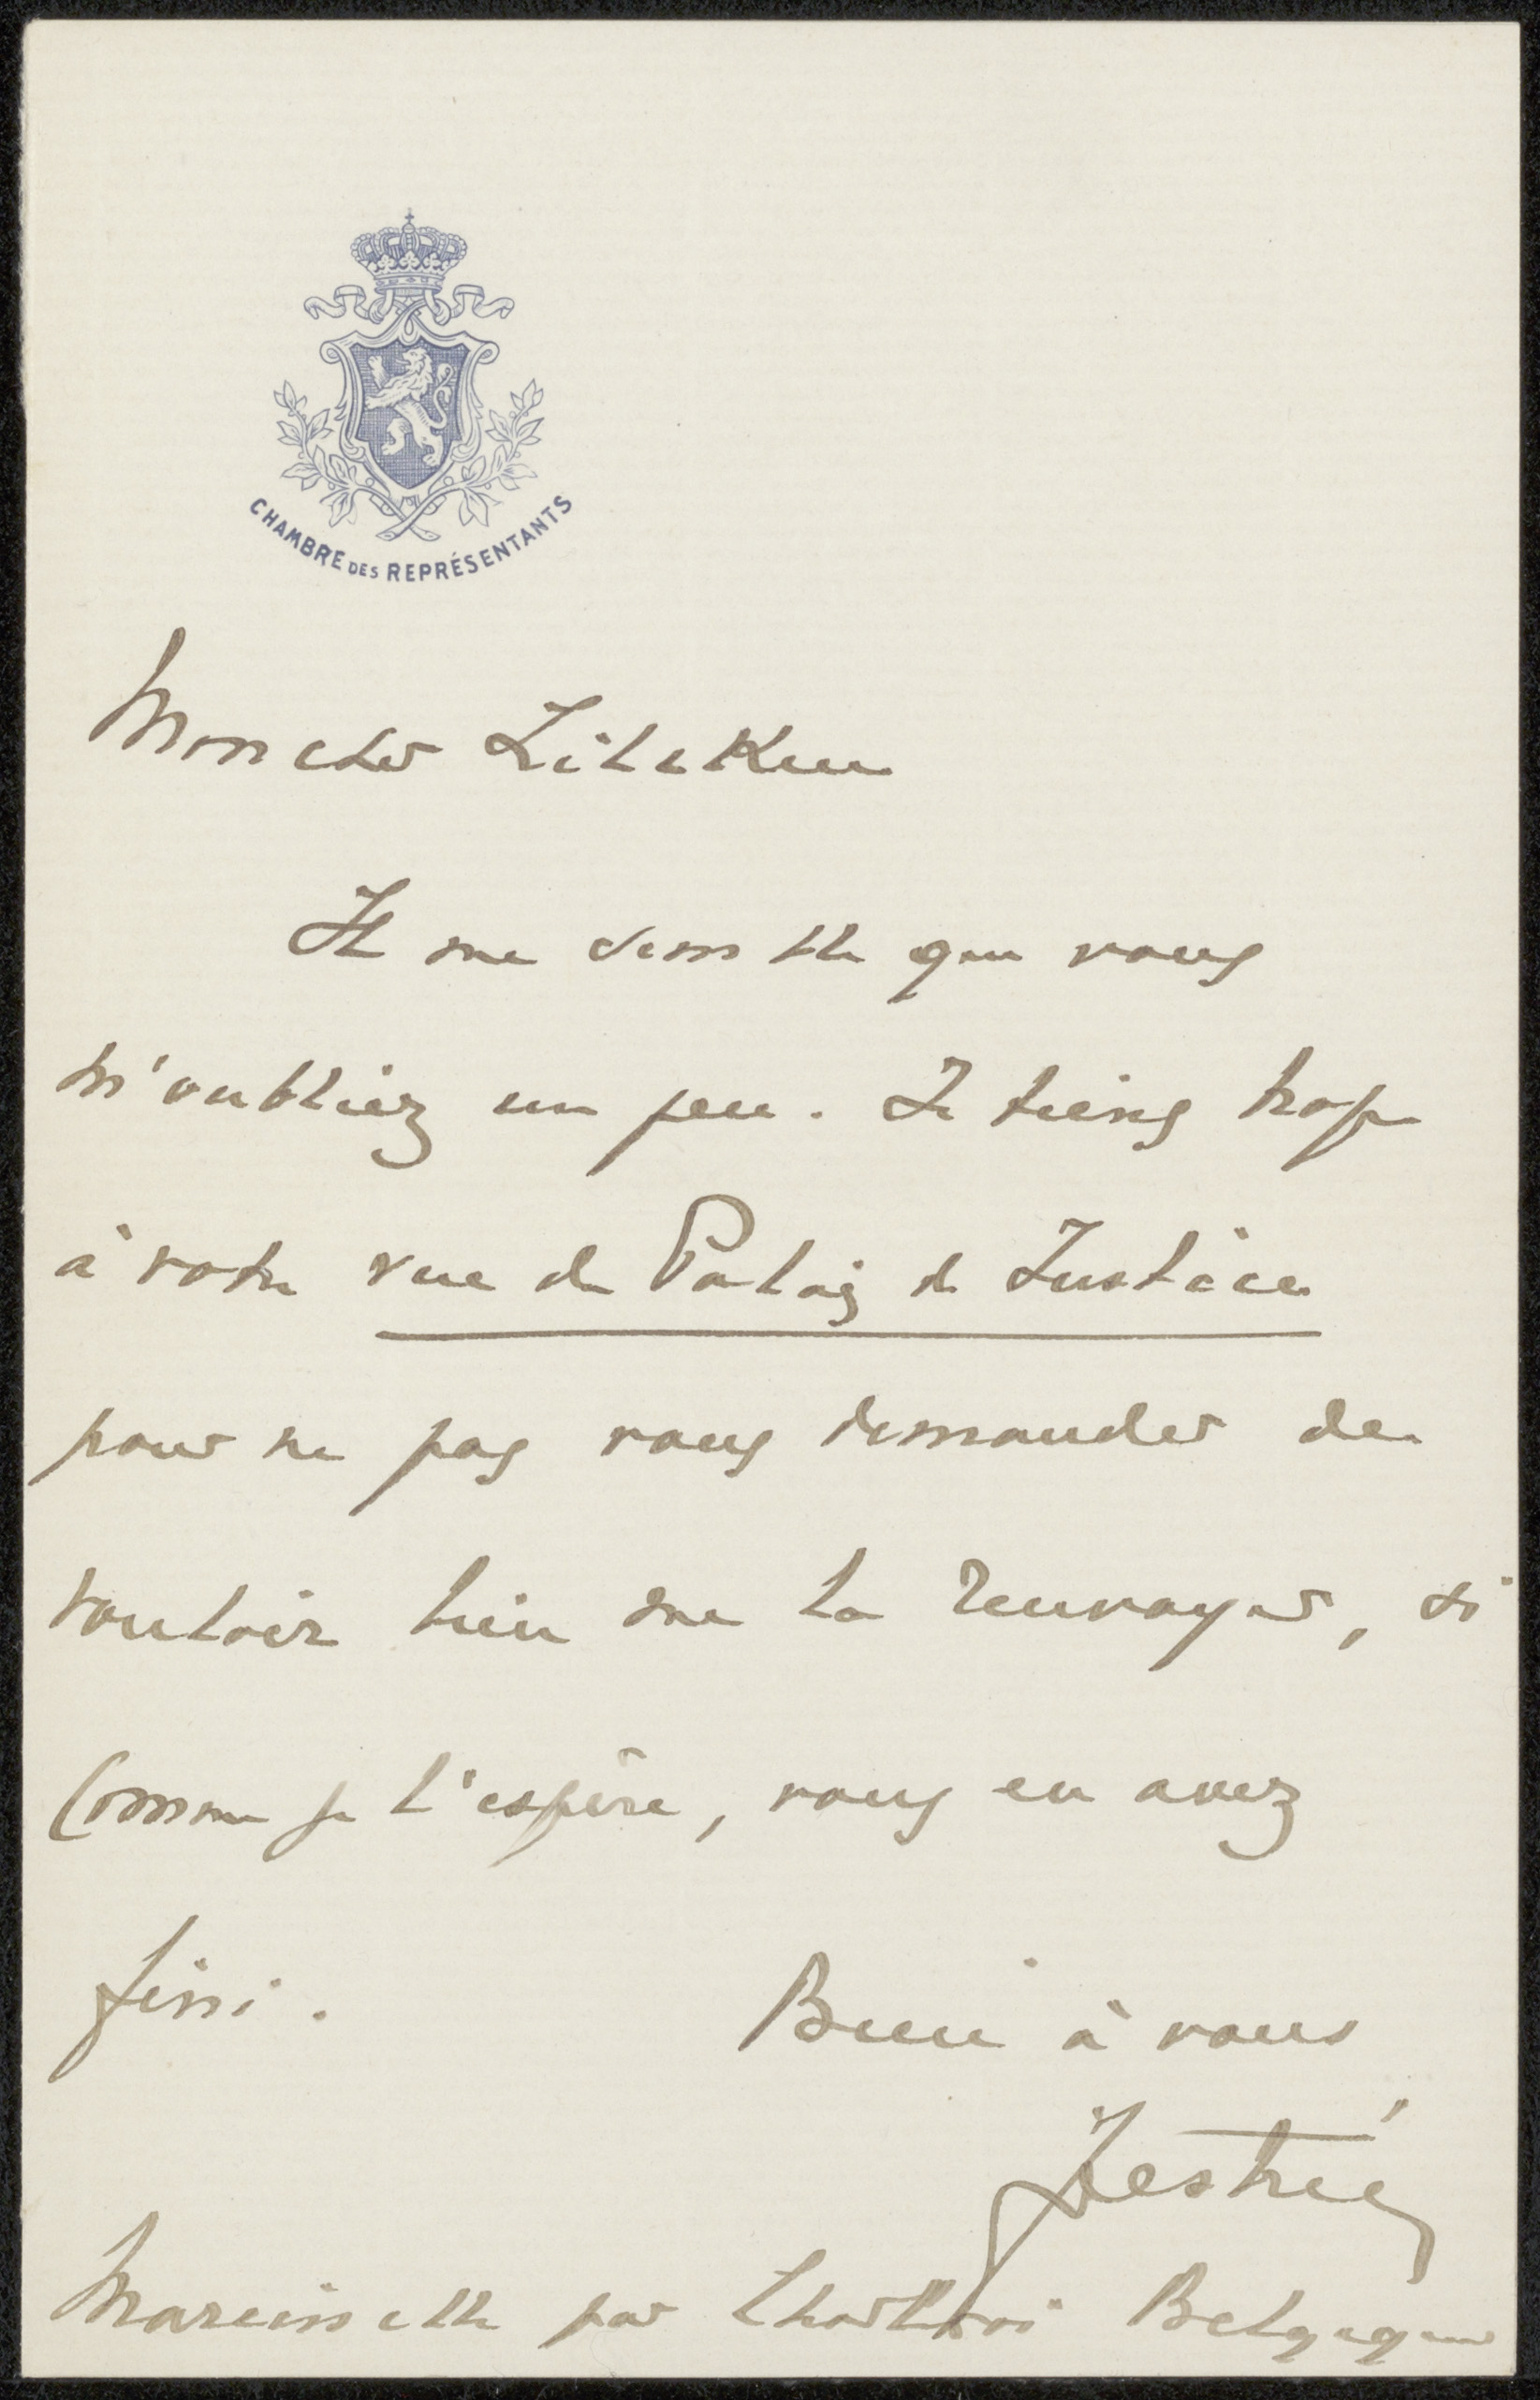 CHAMBRE DES REPRÉSENTANTS
Mon cher Zilcken
Il me semble que vous
m'oubliez un peu. Je tiens trop
à votre vue du Palais de Justice
pour ne pas vous demander de
vouloir bien me la renvoyer, si
Comme je l'espère, vous en avez
fini.
Bien à vous
Destrée
Marcinelle par Charleroi Belgique